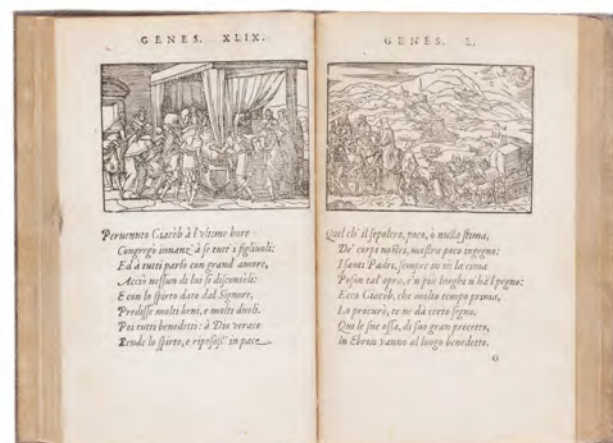 GENES. XLIX.
Peruenuto Giacòb à l'vltime hore
Congregò innanz' à se tutt' i figliuoli:
Ed à tutti parlò con grand' amore,
Acciò nessun di lui si disconsòli:
E con lo spirto dato dal Signore,
Predisse molti beni, e molti duoli.
Poi tutti benedetti: à Dio verace
Rende lo spirto, e riposossi in pace
GENES. L.
Quel ch' il sepolcro, poco, ò nulla stima,
De' corpi nostri, mostra poco ingegno:
I santi Padri, sempre in sù la cima
Poson tal opra, e'n più luoghi n'hà'l pegno:
Ecco Giacòb, che molto tempo prima,
Lo procurò, te ne dà certo segno.
Quì le sue ossa, di suo gran precetto,
In Ebron vanno al luogo benedetto.
G